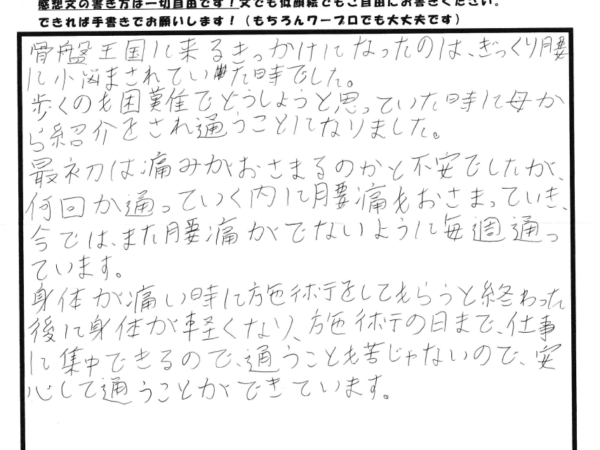 感想文の書き方は一切自由です！文でも似顔絵でもご自由にお書きください。
できれば手書きでお願いします！（もちろんワープロでも大丈夫です）
骨盤王国に来るきっかけになったのは、ぎっくり腰
に小悩まされていた時でした。
歩くのも困難でどうしようと思っていた時に母か
ら紹介をされ通うことになりました。
最初は痛みがおさまるのかと不安でしたが、
何回か通っていく内に腰痛もおさまっていき、
今では、また腰痛がでないように毎週通っ
ています。
身体が痛い時に施術をしてもらうと終わった
後に身体が軽くなり、施術の日まで、仕事
に集中できるので、通うことも苦じゃないので、安
心して通うことができています。